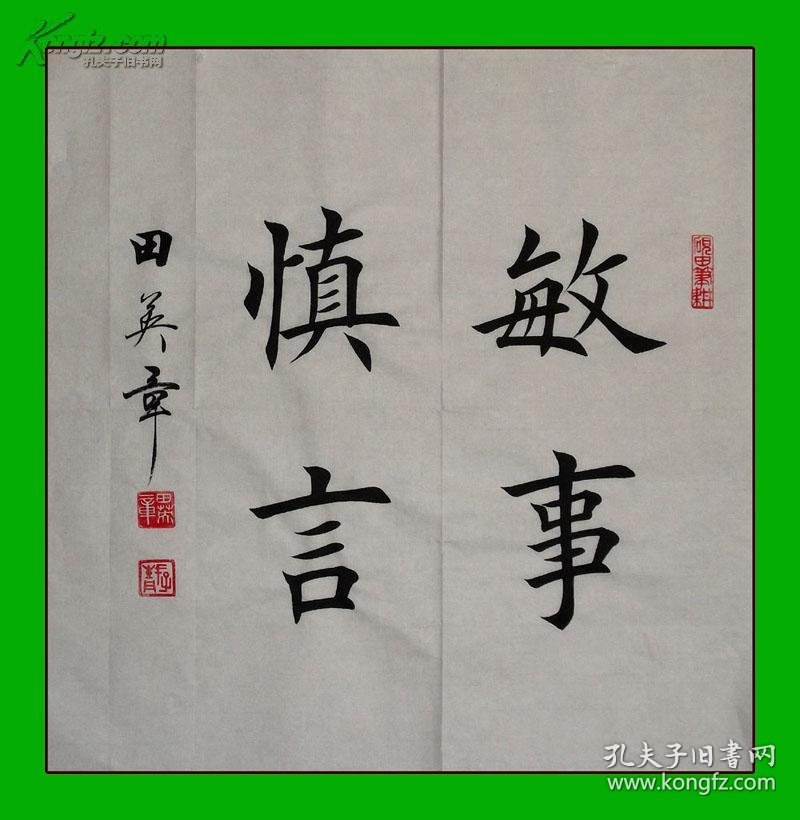 敏事
慎言
田英章
砚田笔耕
Kongfz.com
孔夫子旧书网
孔夫子旧書网
www.kongfz.com